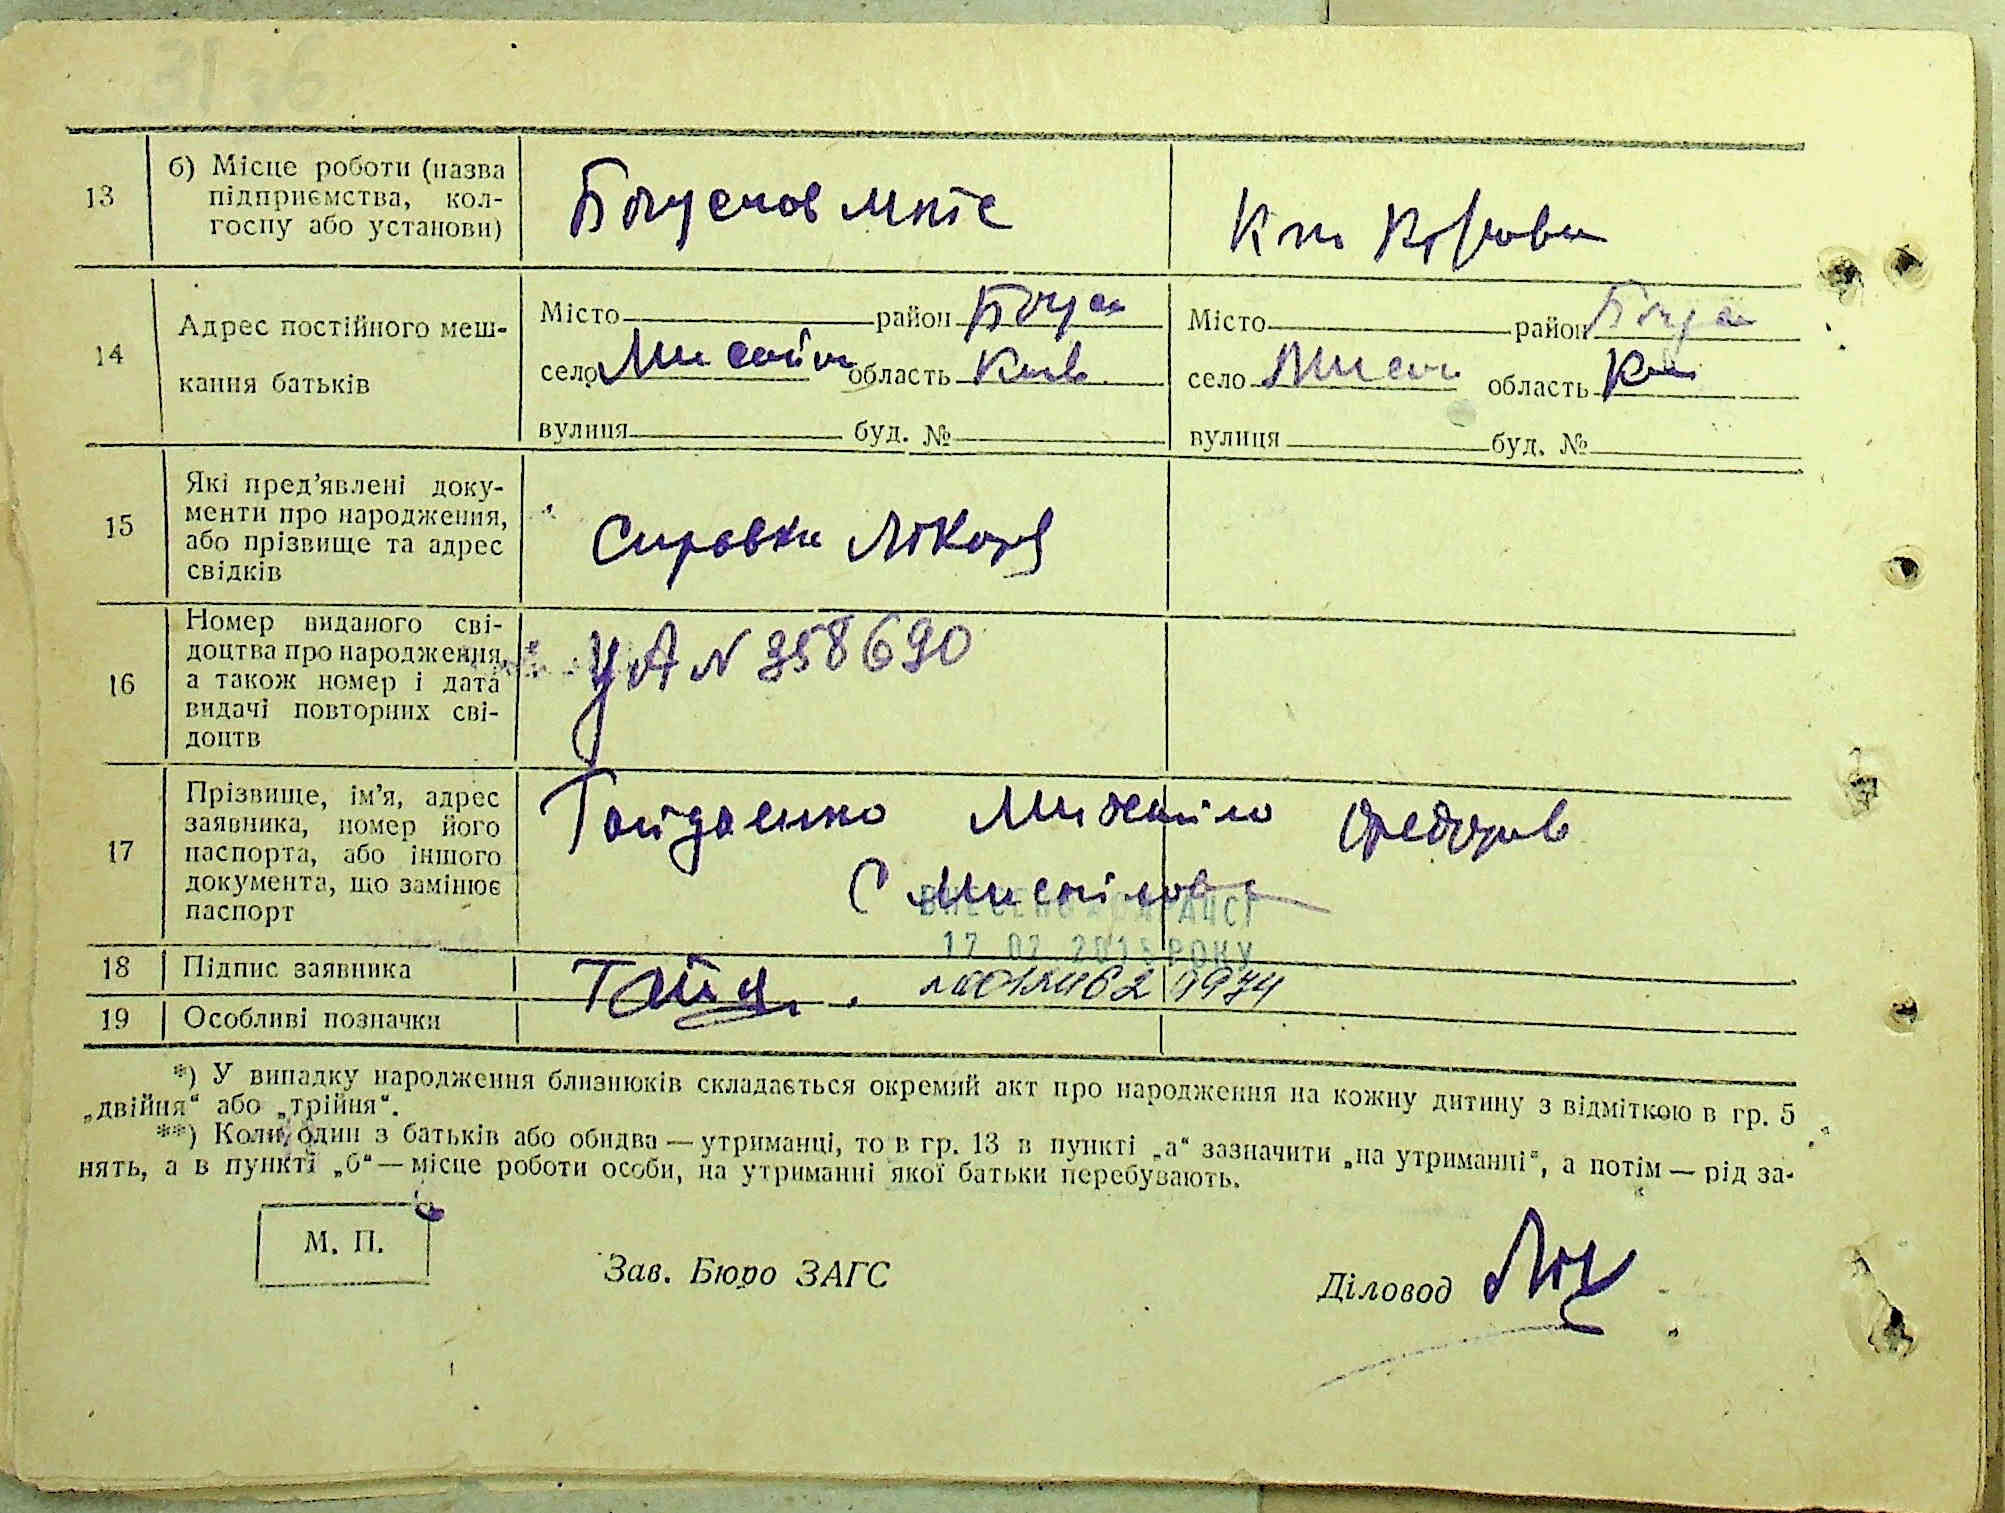 13
б) Місце роботи (назва
підприємства, кол-
госпу або установи)
Богуслов
14
Адрес постійного меш-
кання батьків
Місто район Богус
село область Київ
вулиця буд. №
Місто район Богус
село область Ки
вулиця буд. №
15
Які пред'явлені доку-
менти про народження,
або прізвище та адрес
свідків
Справка лікаря
16
Номер виданого сві-
доцтва про народження
а також номер і дата
видачі повторних сві-
доцтв
УА N 358690
17
Прізвище, ім'я, адрес
заявника, номер його
паспорта, або іншого
документа, що замінює
паспорт
Гайдаенко Михайло Федоров
С
ВНЕСЕНО ДО ДРАЦСГ
17 02 2015 РОКУ
18
Підпис заявника
Гайд.
19
Особливі позначки
*) У випадку народження близнюків складається окремий акт про народження на кожну дитину з відміткою в гр. 5
„двійня“ або „трійня“.
**) Коли один з батьків або обидва — утриманці, то в гр. 13 в пункті „а“ зазначити „на утриманні“, а потім — рід за-
нять, а в пункті „б“ — місце роботи особи, на утриманні якої батьки перебувають.
М. П.
Зав. Бюро ЗАГС
Діловод